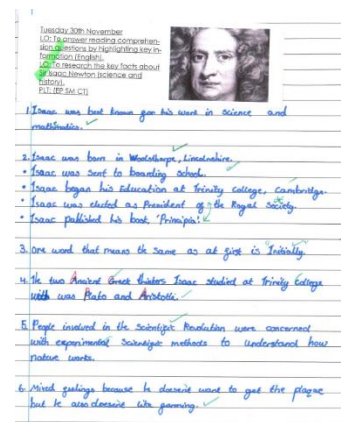 Tuesday 30th November
LO: To answer reading comprehen-
sion questions by highlighting key in-
formation (English).
LO: To research the key facts about
Sir Isaac Newton (science and
history).
PLT: IEP SM CT
1. Isaac was best known for his work in science and
mathematics.
2. Isaac was born in Woolsthorpe, Lincolnshire.
• Isaac was sent to boarding school.
• Isaac began his Education at Trinity College, Cambridge.
• Isaac was elected as President of the Royal Society.
• Isaac published his book, 'Principia'.
3. One word that means the same as at first is Initially.
4. The two Ancient Greek thinkers Isaac studied at Trinity College
was Plato and Aristotle.
5. People involved in the Scientific Revolution were concerned
with experimental scientific methods to understand how
nature works.
6. Mixed feelings because he doesn't want to get the plague
but he also doesn't like farming.